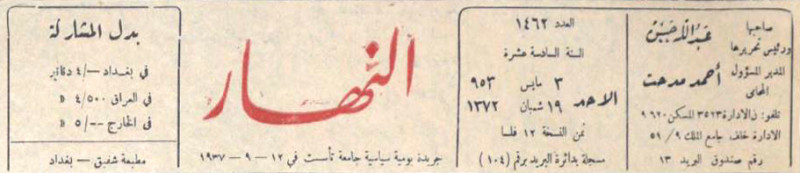 صاحبها
ورئيس تحريرها
عبدالله حسين
المدير المسؤول
أحمد مدحت
المحامي
تلفون الادارة ٣٥٢٣ المسكن ٩٦٢٠
الادارة خلف جامع الملك ٩ / ٥١
رقم صندوق البريد ١٣
العدد ١٤٦٢
السنة السادسة عشرة
الاحد
٣ مايس ٩٥٣
١٩ شعبان ١٣٧٢
ثمن النسخة ١٢ فلسا
مسجلة بدائرة البريد برقم (١٠٤)
النهار
جريدة يومية سياسية جامعة تأسست في ١٧ - ٩ - ١٩٣٧
بدل المشاركة
في بغداد —/٤ دنانير
في العراق ٤/٥٠٠ »
في الخارج --/٥ »
مطبعة شفيق - بغداد